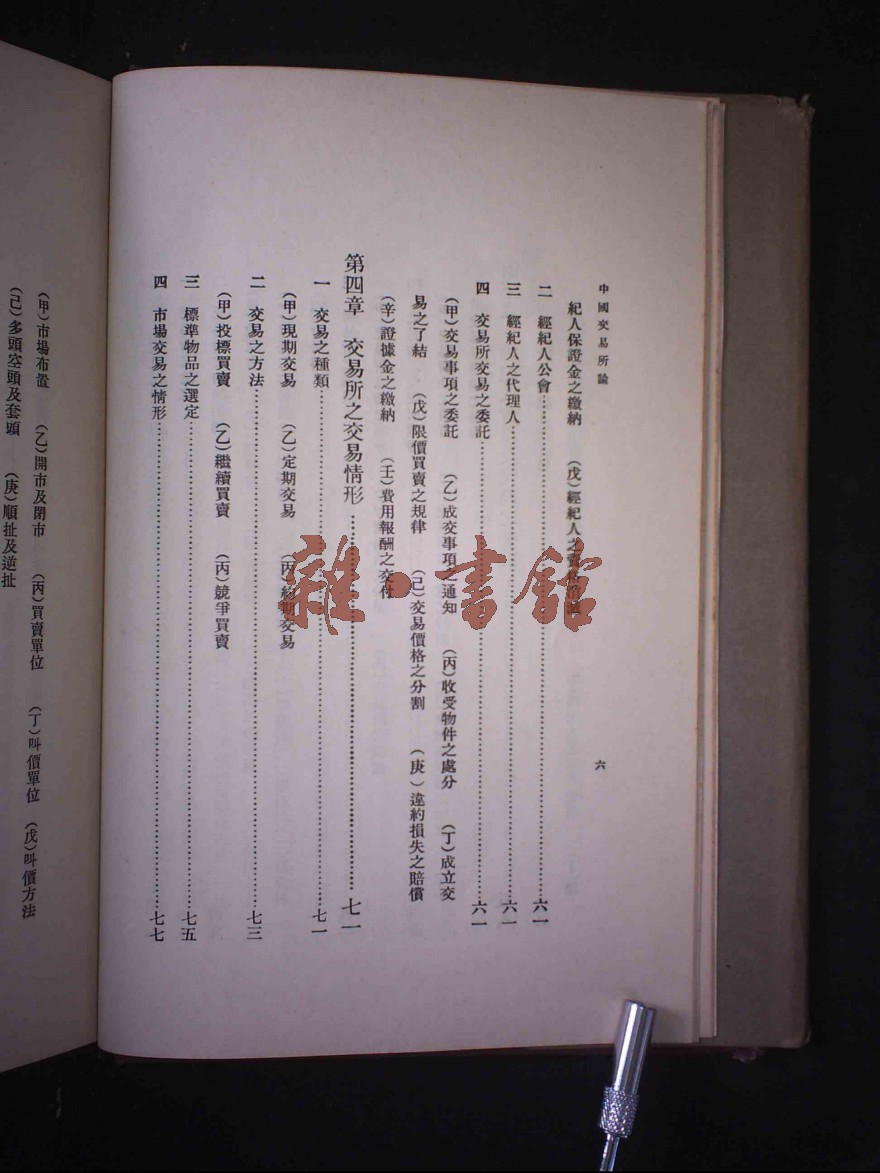 中國交易所論
六
紀人保證金之繳納 （戊）經紀人之資格消滅
二 經紀人公會……六一
三 經紀人之代理人……六一
四 交易所交易之委託……六一
（甲）交易事項之委託 （乙）成交事項之通知 （丙）收受物件之處分 （丁）成立交
易之了結 （戊）限價買賣之規律 （己）交易價格之分割 （庚）違約損失之賠償
（辛）證據金之繳納 （壬）費用報酬之交付
第四章 交易所之交易情形……七一
一 交易之種類……七一
（甲）現期交易 （乙）定期交易 （丙）約期交易
二 交易之方法……七三
（甲）投標買賣 （乙）繼續買賣 （丙）競爭買賣
三 標準物品之選定……七五
四 市場交易之情形……七七
（甲）市場布置 （乙）開市及閉市 （丙）買賣單位 （丁）叫價單位 （戊）叫價方法
（己）多頭空頭及套頭 （庚）順扯及逆扯
雜·書館